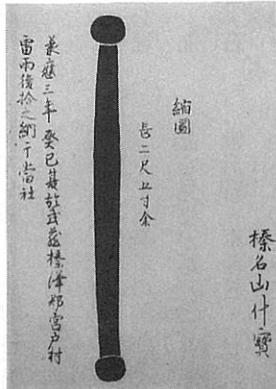 榛名山什寳
縮圖
長二尺五寸余
承應三年癸巳年於武蔵榛澤郡宮戸村
雷雨後拾之納于當社